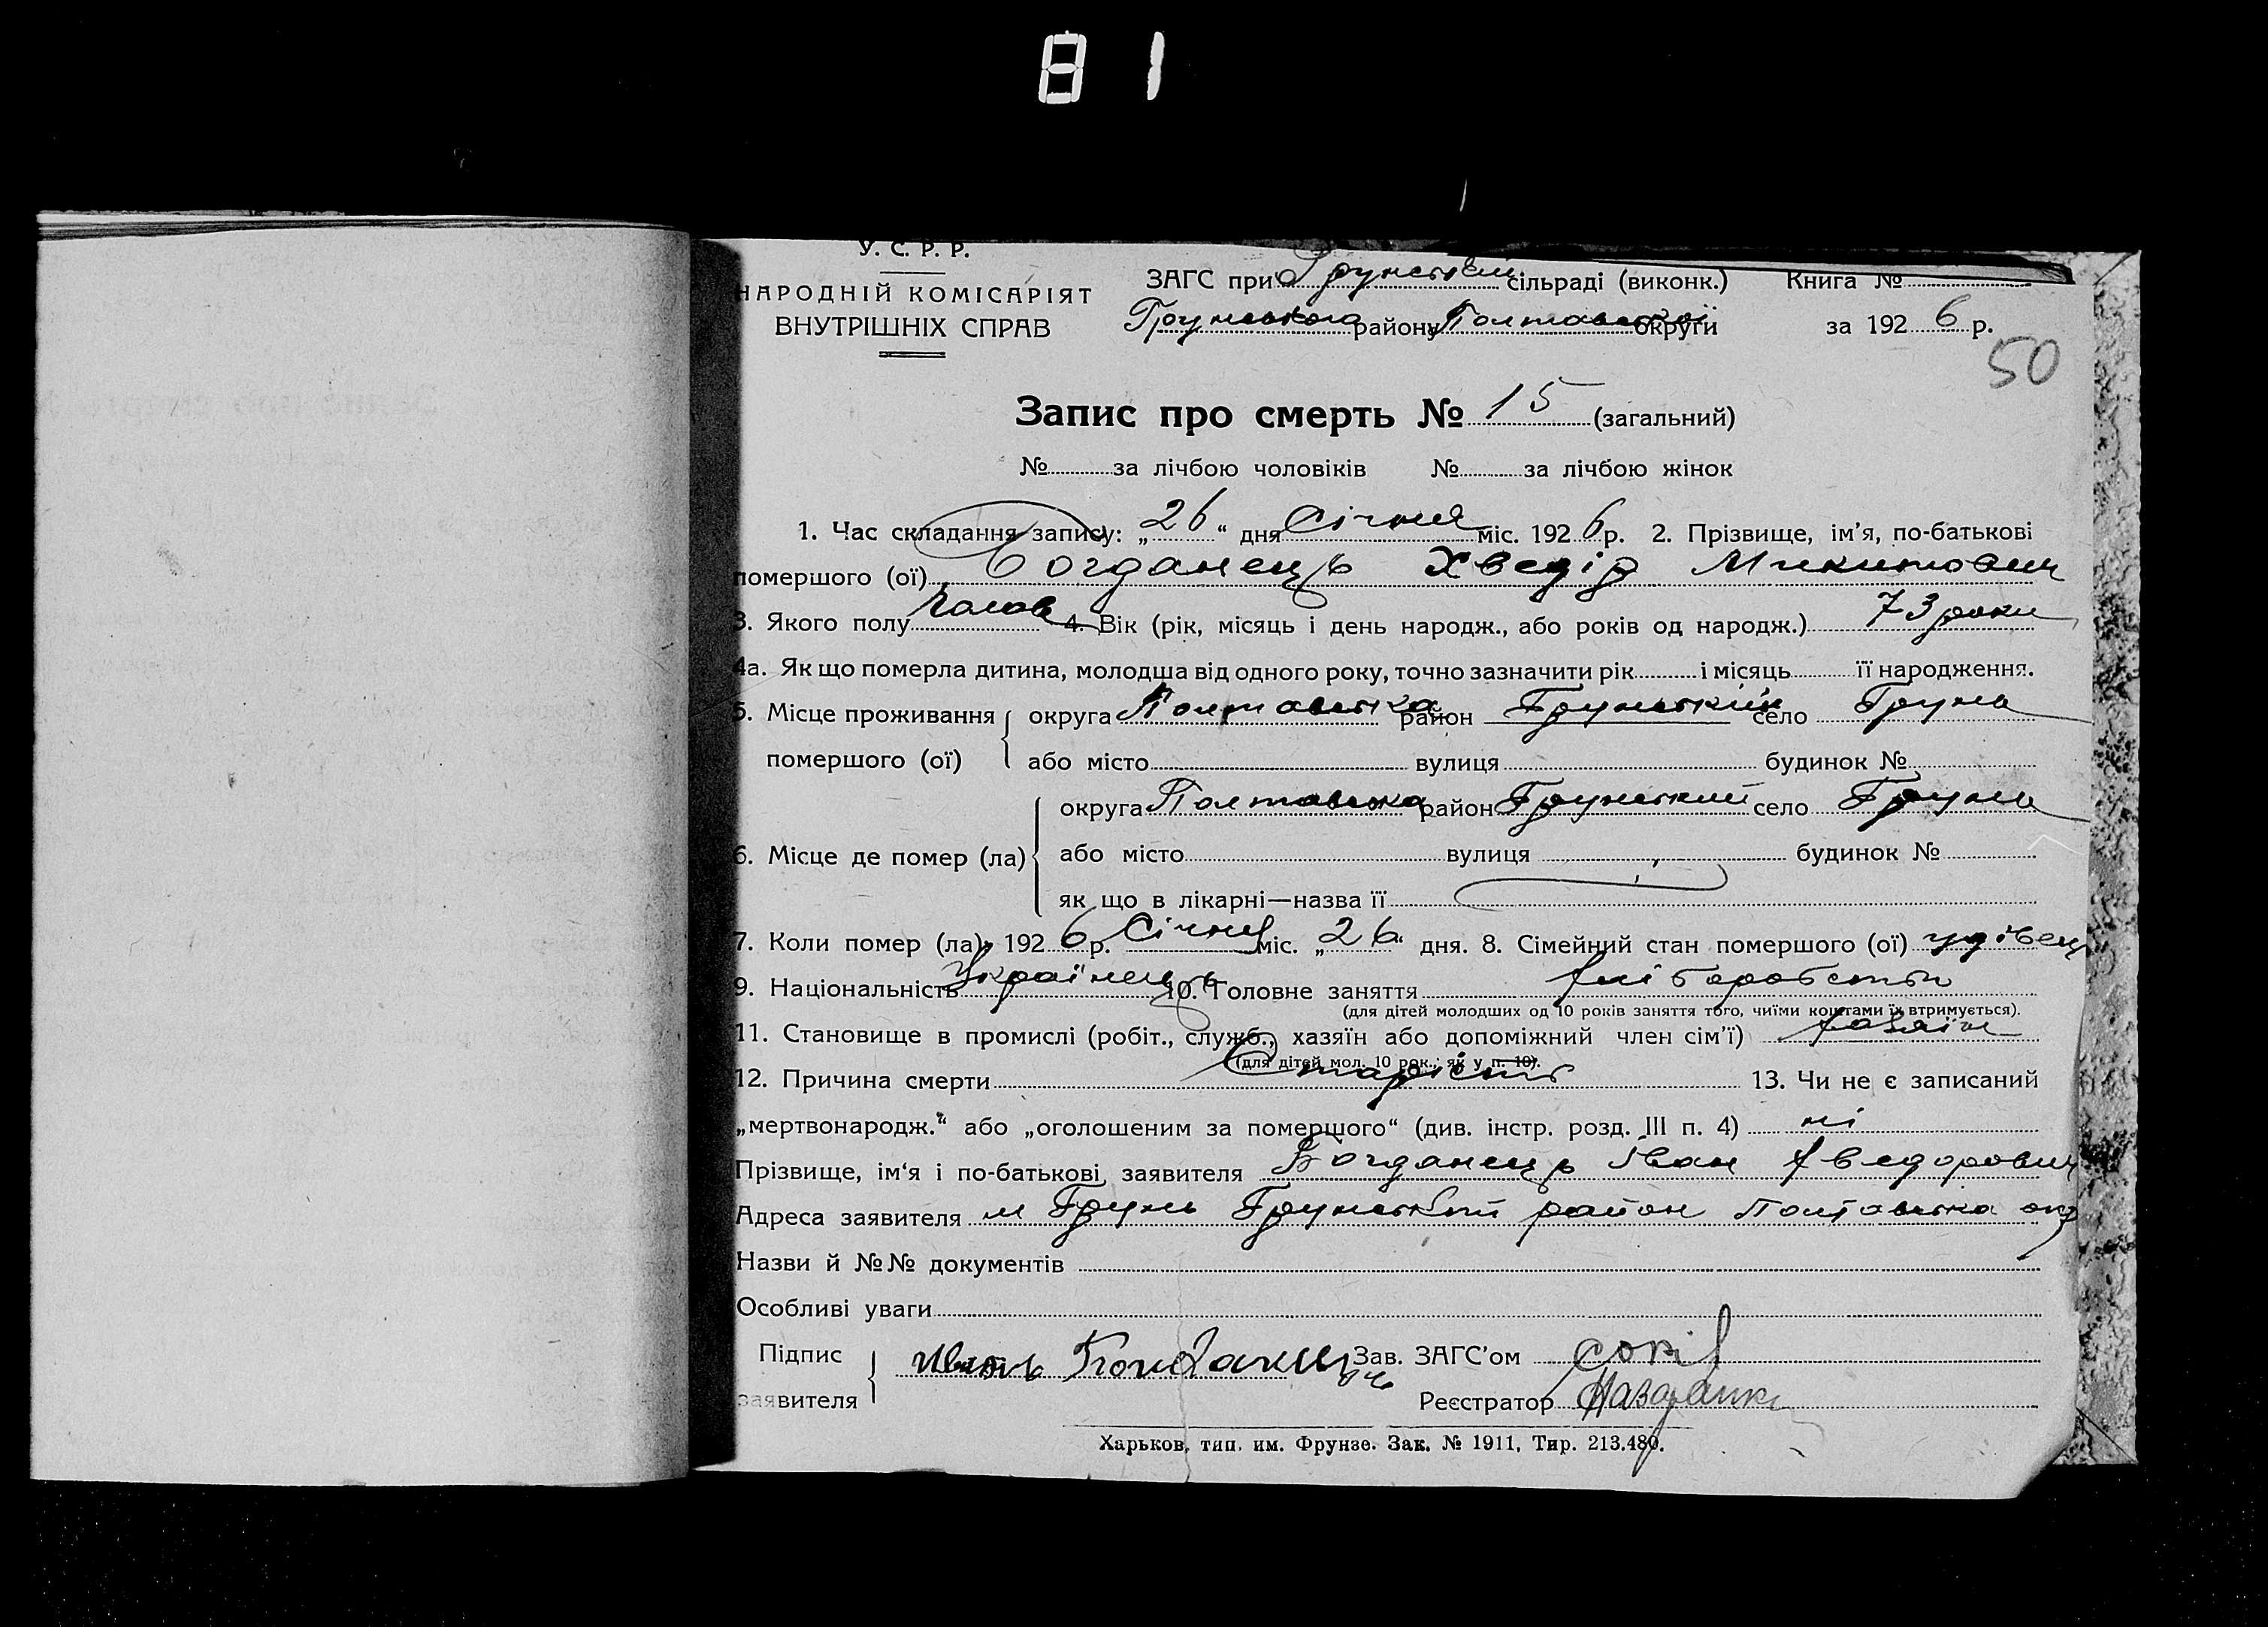 81
У. С. Р. Р.
НАРОДНІЙ КОМІСАРІЯТ
ВНУТРІШНІХ СПРАВ
ЗАГС при Грунській сільраді (виконк.) Книга №
Грунського району Полтавської округи за 1926 р.
50
Запис про смерть № 15 (загальний)
№ за лічбою чоловіків № за лічбою жінок
1. Час складання запису: „26“ дня Січня міс. 1926 р. 2. Прізвище, ім’я, по-батькові
помершого (ої) Богданець Хведір Микитович
3. Якого полу чолов 4. Вік (рік, місяць і день народж., або років од народж.) 73 роки
4а. Як що померла дитина, молодша від одного року, точно зазначити рік і місяць її народження.
5. Місце проживання округа Полтавська район Грунський село Грунь
помершого (ої) або місто вулиця будинок №
округа Полтавська район Грунський село Грунь
6. Місце де помер (ла) або місто вулиця будинок №
як що в лікарні—назва її
7. Коли помер (ла) 1926 р. Січня міс. „26“ дня. 8. Сімейний стан помершого (ої) удівець
9. Національність Українець 10. Головне заняття хліборобство
(для дітей молодших од 10 років заняття того, чиїми коштами їх втримується).
11. Становище в промислі (робіт., служб., хазяїн або допоміжний член сім’ї) хазяїн
(для дітей мол. 10 рок.; як у п. 10).
12. Причина смерти Старість 13. Чи не є записаний
„мертвонародж.“ або „оголошеним за помершого“ (див. інстр. розд. III п. 4) ні
Прізвище, ім‘я і по-батькові заявителя Богданець Іван Хведорович
Адреса заявителя м Грунь Грунський район Полтавська окр
Назви й №№ документів
Особливі уваги
Підпис Зав. ЗАГС’ом
заявителя Реєстратор
Харьков, тип. им. Фрунзе. Зак. № 1911, Тир. 213.480.